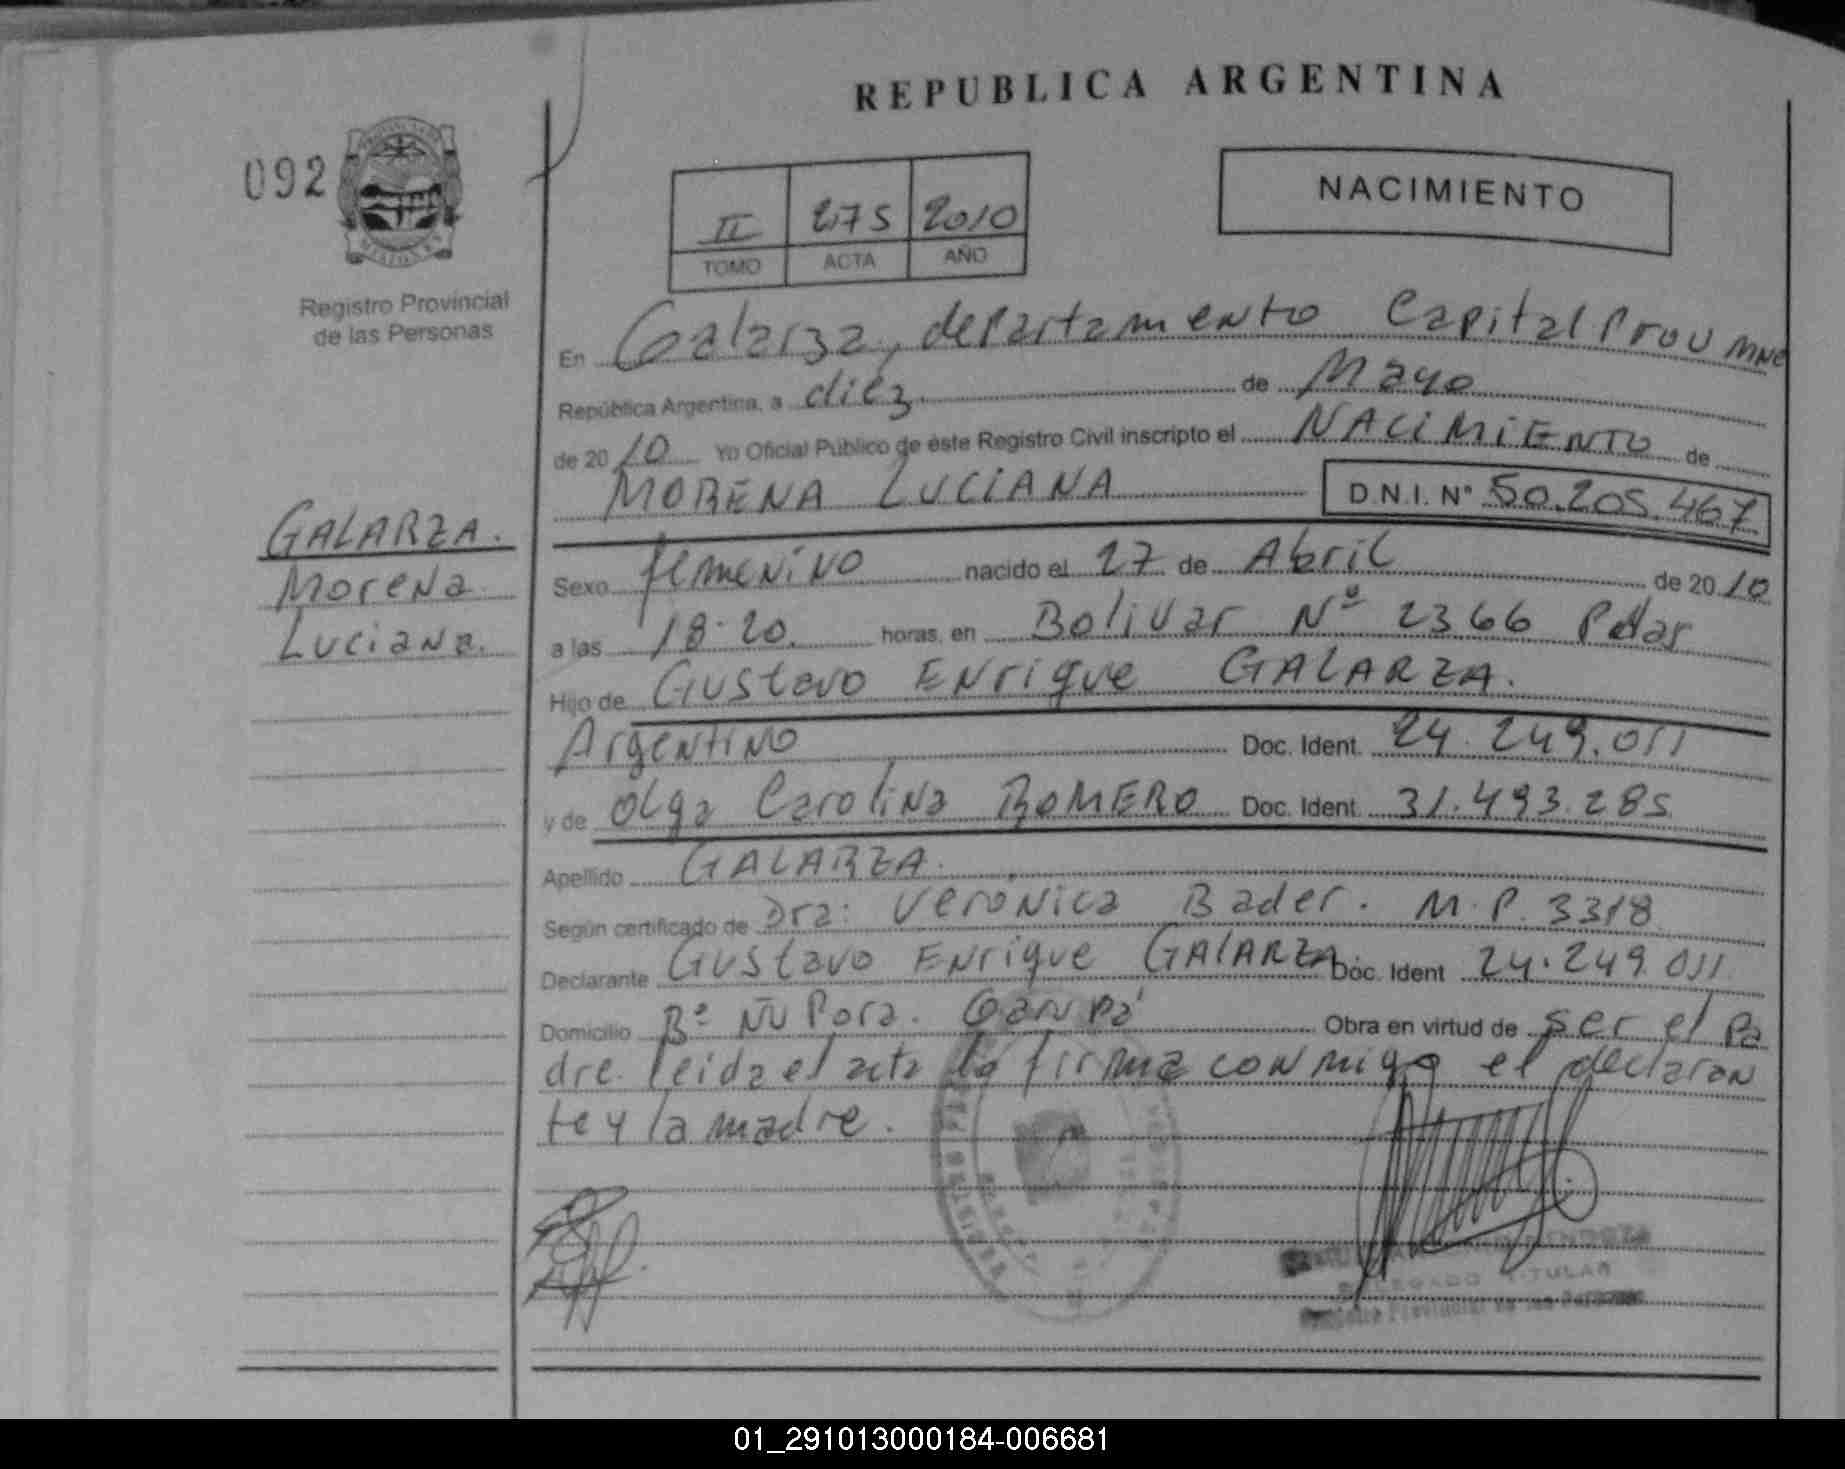 REPUBLICA ARGENTINA
092
NACIMIENTO
II 275 2010
TOMO ACTA AÑO
Registro Provincial
de las Personas
En Galarza, departamento Capital Prov Mnes
República Argentina, a diez de Mayo
de 2010 Yo Oficial Público de este Registro Civil inscripto el NACIMIENTO de
MORENA LUCIANA D.N.I. Nº 50.205.467
GALARZA.
Morena
Luciana.
Sexo femenino nacido el 27 de Abril de 2010
a las 18.20. horas, en Bolivar Nº 2366 Pdas
Hijo de Gustavo Enrique GALARZA.
Argentino Doc. Ident. 24.249.011
y de Olga Carolina ROMERO Doc. Ident. 31.493.285
Apellido GALARZA.
Según certificado de Dra: Verónica Bader. M.P. 3318
Declarante Gustavo Enrique GALARZA Doc. Ident 24.249.011
Domicilio Bº Ñu Pora. Garupá Obra en virtud de ser el pa
dre. leida el acta la firma conmigo el declaran
te y la madre.
DELEGADO TITULAR
Registro Provincial de las Personas
01_291013000184-006681